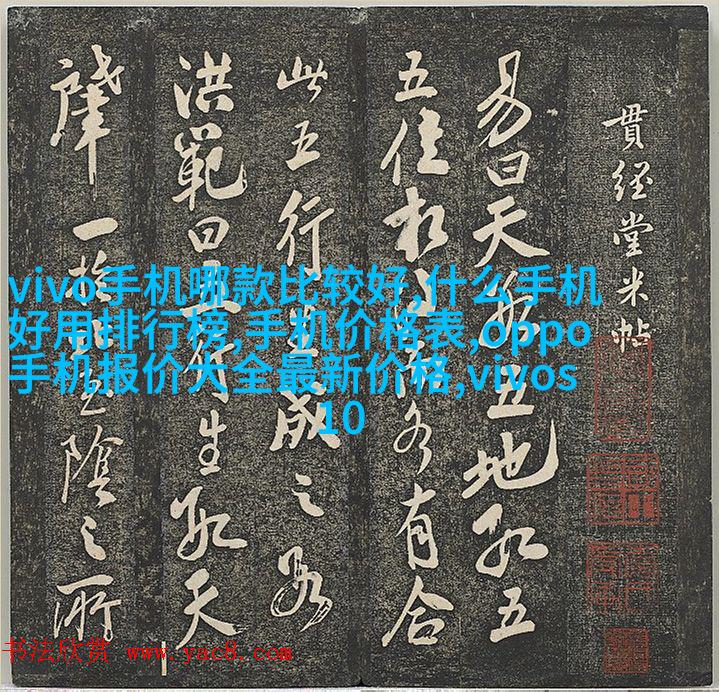 貫經堂米帖
易曰天數五地數五
五位相得而各有合
此五行生成之數
洪範曰五行生數天
肇一於陰之所
vivo手机哪款比较好,什么手机
好用排行榜,手机价格表,oppo
手机报价大全最新价格,vivos
10
书法欣赏 www.yac8.com